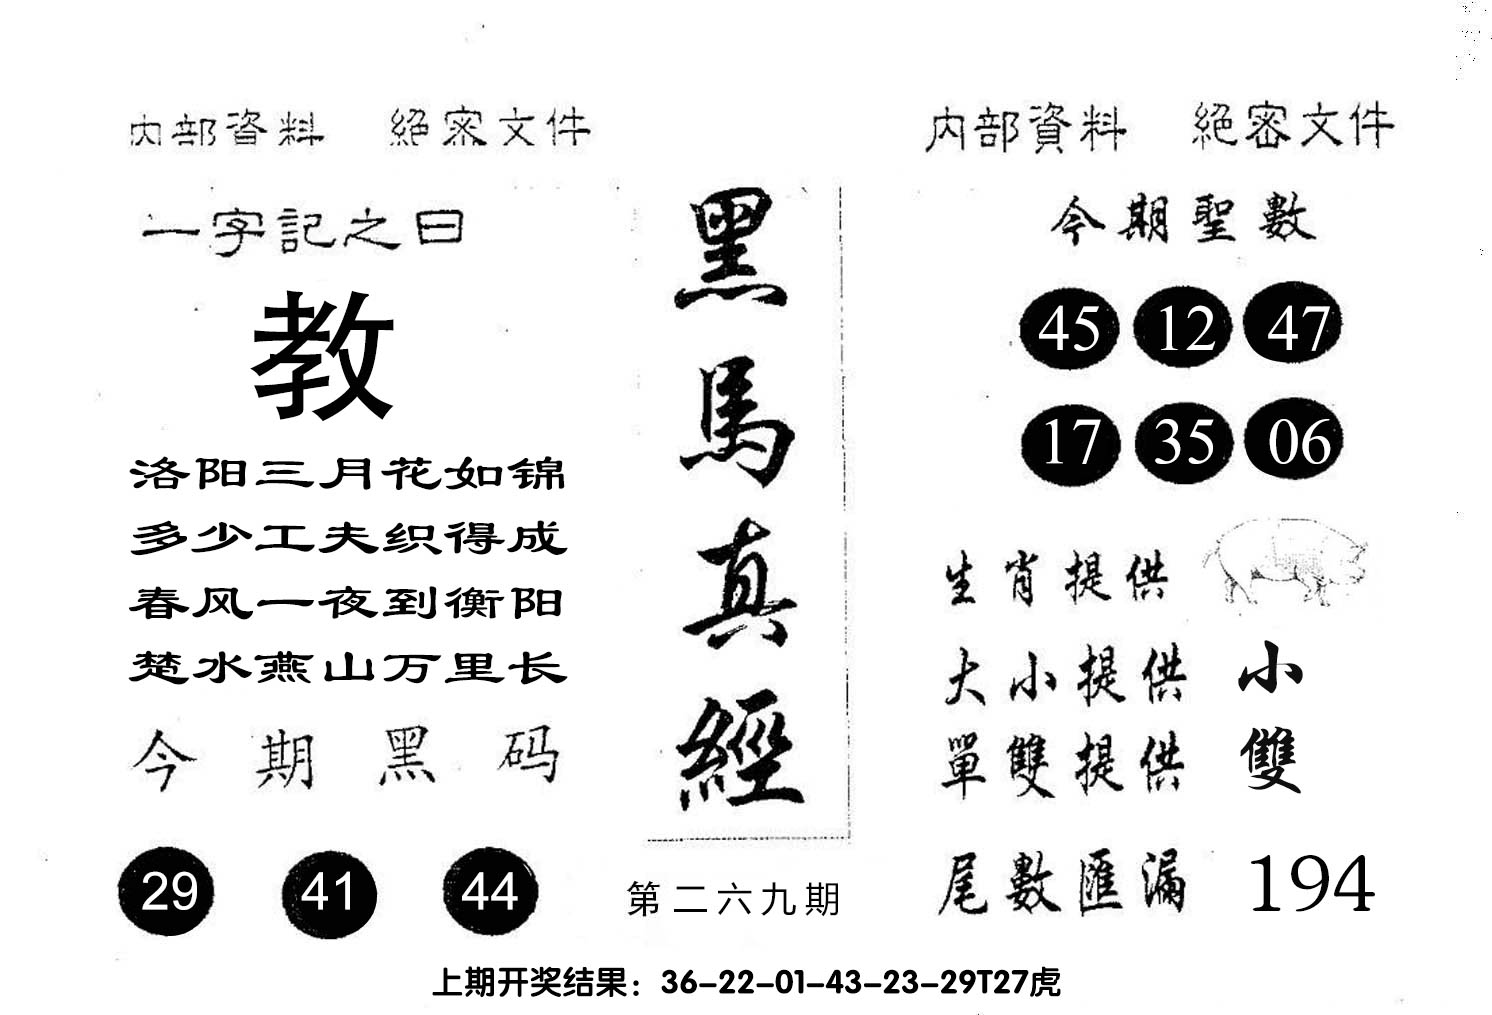 内部資料 絕密文件
一字記之曰
教
洛阳三月花如锦
多少工夫织得成
春风一夜到衡阳
楚水燕山万里长
今期黑码
29 41 44
黑馬真經
第二六九期
内部資料 絕密文件
今期聖數
45 12 47
17 35 06
生肖提供
大小提供 小
單雙提供 雙
尾數匯漏 194
上期开奖结果：36-22-01-43-23-29T27虎